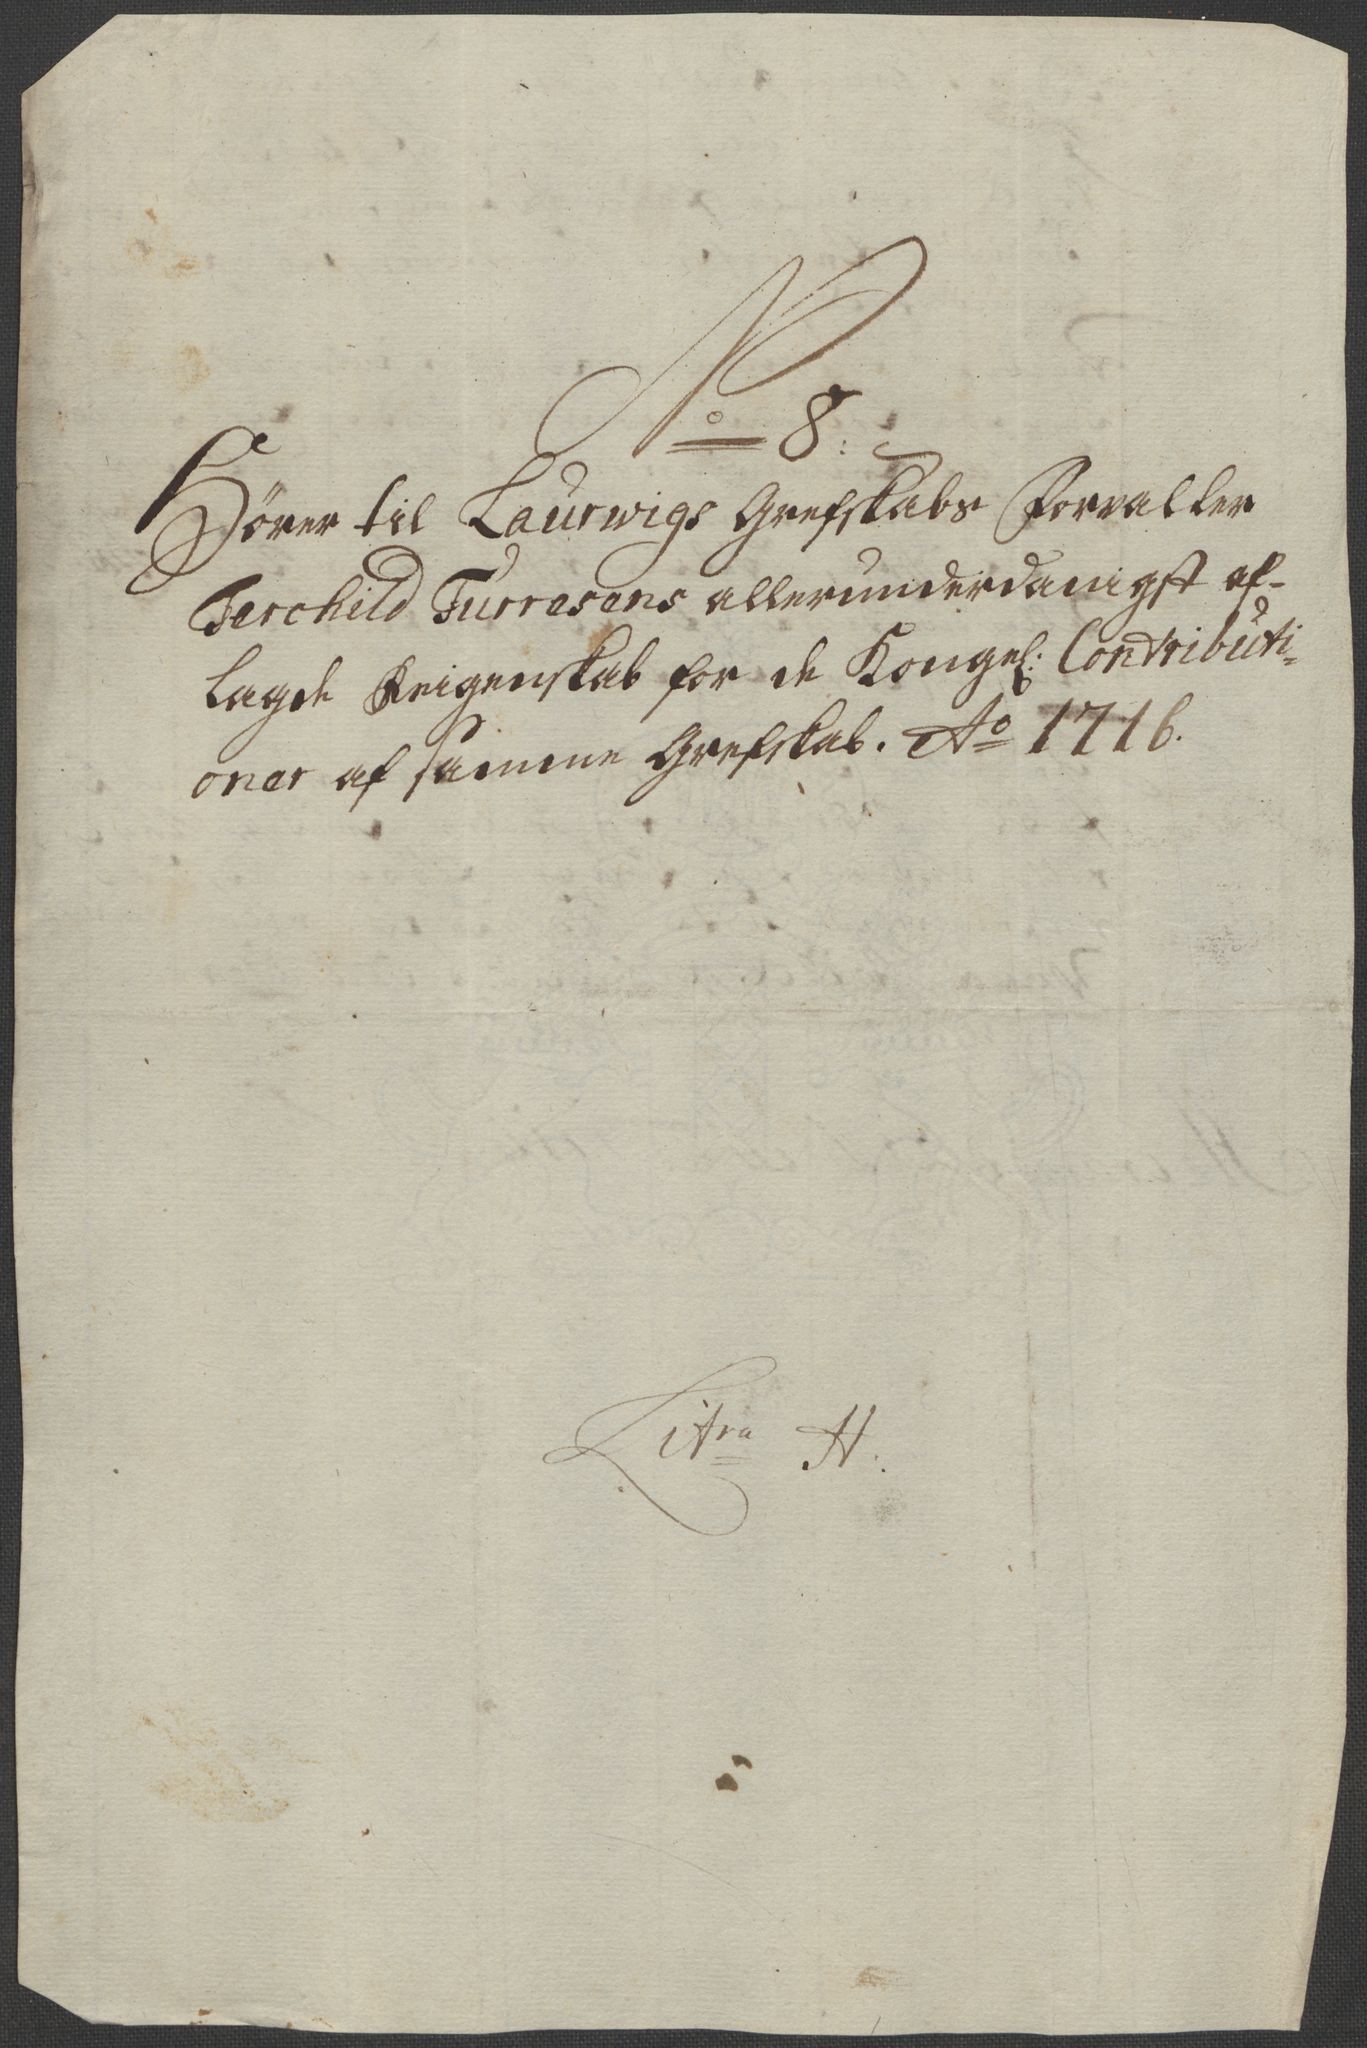 No 8.
Hörer til Laurwigs Grefskabs Forvalter
Terchild Turresens allerunderdanigst af-
lagde Reigenskab for de Kongel: Contributi-
oner af samme Grefskab. Ao 1716.
Litra H.